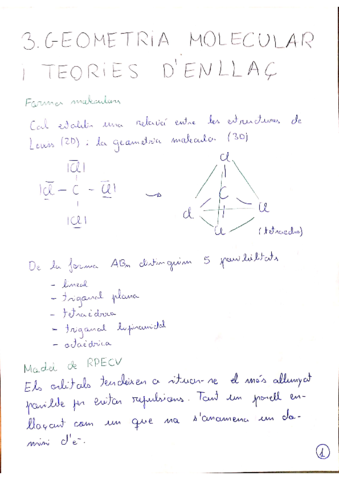 3. GEOMETRIA MOLECULAR
I TEORIES D'ENLLAÇ
Formes moleculars
Cal establir una relació entre les estructures de
Lewis (2D) i la geometria molecular (3D)
|Cl|
|Cl – C – Cl|
|Cl|
Cl
C
Cl
Cl
Cl
(tetraedre)
De la forma ABn distingim 5 possibilitats
- lineal
- trigonal plana
- tetraèdrica
- trigonal bipiramidal
- octaèdrica
Model de RPECV
Els orbitals tendeixen a situar-se el més allunyat
possible per evitar repulsions. Tant un parell en-
llaçant com un que no s'anomena un do-
mini d'e-.
1